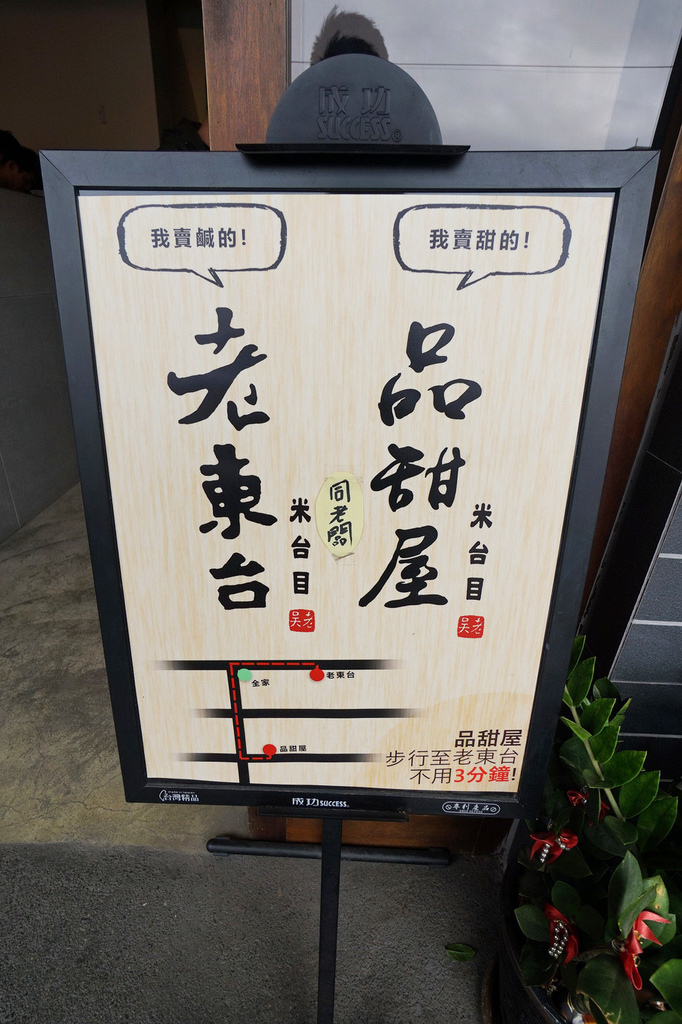 成功
SUCCESS®
我賣鹹的!
我賣甜的!
老東台
米台目
同老闆
品甜屋
米台目
老吳
老吳
全家
老東台
品甜屋
品甜屋
步行至老東台
不用3分鐘!
台灣精品
成功 SUCCESS
專利產品